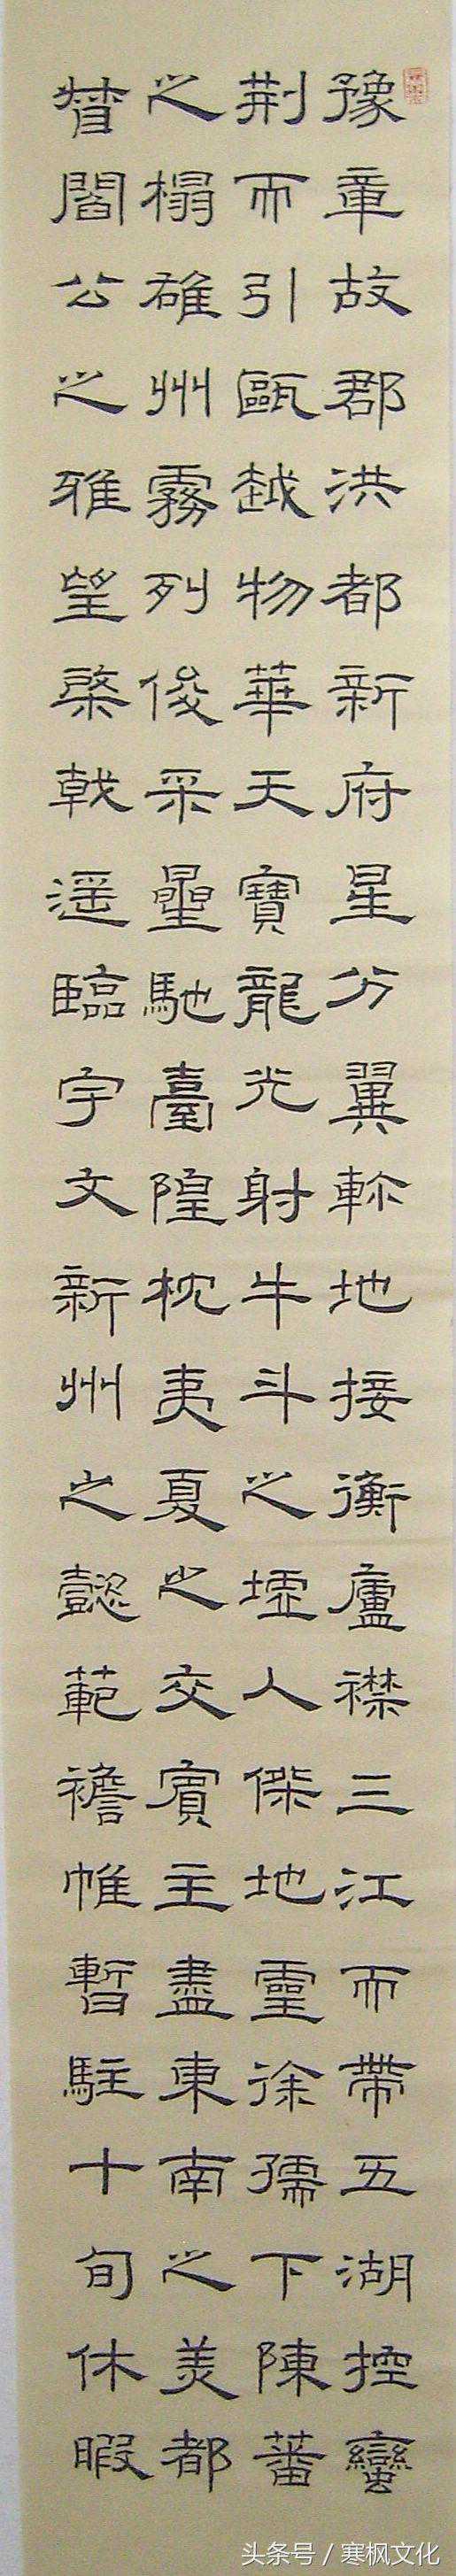 豫章故郡洪都新府星分翼軫地接衡廬襟三江而帶五湖控蠻
荆而引甌越物華天寶龍光射牛斗之墟人傑地靈徐孺下陳蕃
之榻雄州霧列俊采星馳臺隍枕夷夏之交賓主盡東南之美都
督閻公之雅望棨戟遥臨宇文新州之懿範襜帷暫駐十旬休暇
头条号 / 寒枫文化